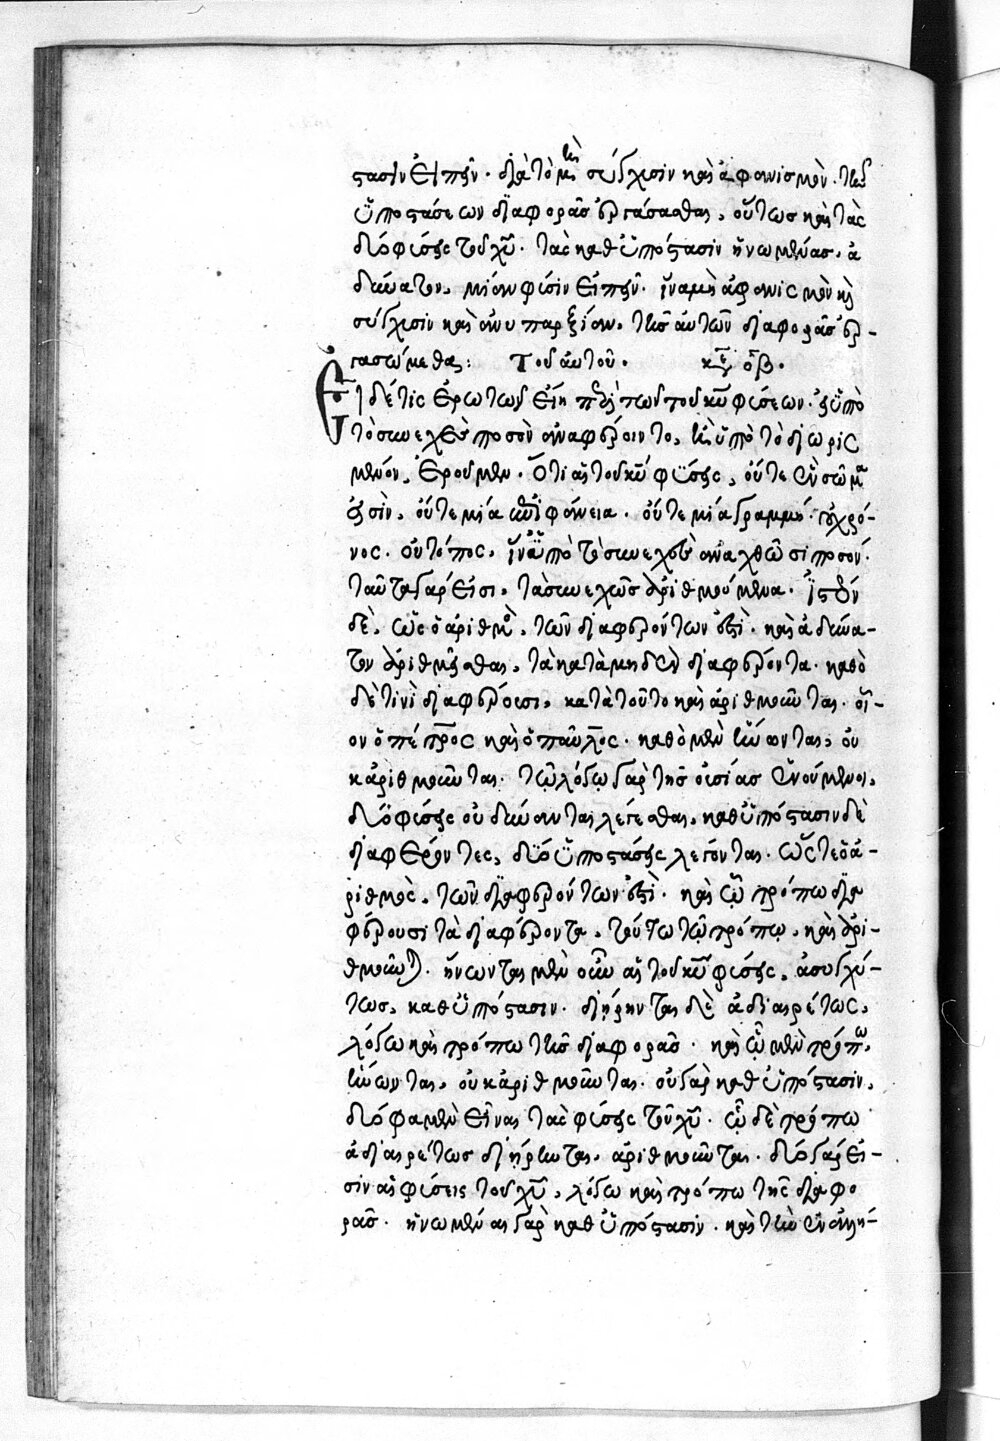 στασιν εἰπεῖν· διὰ τὸ μὴ σύγχυσιν καὶ ἀφανισμὸν τῆς
ὑποστάσεων διαφορᾶς ἐργάσασθαι, οὕτως καὶ τὰς
δύο φύσεις τοῦ χῦ· τὰς καθ' ὑπόστασιν ἡνωμένας, ἀ
δύνατον, μίαν φύσιν εἰπεῖν· ἵνα μὴ ἀφανισμὸν καὶ
σύγχυσιν καὶ ἀνυπαρξίαν, τῆς αὐτῶν διαφορᾶς ἐρ-
γασώμεθα: Τοῦ αὐτοῦ· κεφ οβ·
Εἰ δέ τις ἐρωτῶν εἴη περὶ τῶν τοῦ κυ φύσεων· εἰ ὑπὸ
τὸ συνεχὲς ποσὸν ἀναφέροιντο, ἢ ὑπὸ τὸ διωρισ
μένον, ἐροῦμεν· ὅτι αἱ τοῦ κυ φύσεις, οὔτε ἓν σῶμά
εἰσιν, οὔτε μία ἐπιφάνεια· οὔτε μία γραμμή· οὐ χρό-
νος· οὐ τόπος, ἵνα ὑπὸ τὸ συνεχὲς ἀναχθῶσι ποσόν·
ταῦτα γάρ εἰσι, τὰ συνεχῶς ἀριθμούμενα· ἰστέον
δὲ, ὡς ὁ ἀριθμὸς, τῶν διαφερόντων ἐστὶ· καὶ ἀδύνα-
τον ἀριθμεῖσθαι, τὰ κατὰ μηδὲν διαφέροντα· καθὸ
δέ τινι διαφέρουσι, κατὰ τοῦτο καὶ ἀριθμοῦνται· οἷ-
ον ὁ πέτρος καὶ ὁ παῦλος· καθὸ μὲν ἥνωνται, οὐ
κ ἀριθμοῦνται· τῷ λόγῳ γὰρ τῆς οὐσίας ἑνούμενοι,
δύο φύσεις οὐ δύνανται λέγεσθαι, καθ' ὑπόστασιν δὲ
διαφέροντες, δύο ὑποστάσεις λέγονται· ὥστε ὁ ἀ-
ριθμὸς, τῶν διαφερόντων ἐστὶ· καὶ ᾧ τρόπω δια
φέρουσι τὰ διαφέροντα, τούτω τῷ τρόπῳ, καὶ ἀρι-
θμοῦνται· ἥνωνται μὲν οὖν αἱ τοῦ κυ φύσεις, ἀσυγχύ-
τως, καθ' ὑπόστασιν· διήρηνται δὲ ἀδιαιρέτως,
λόγω καὶ τρόπω τῆς διαφορᾶς· καὶ ᾧ μὲν τρόπω
ἥνωνται, οὐκ ἀριθμοῦνται· οὐ γὰρ καθ' ὑπόστασιν,
δύο φαμὲν εἶναι τὰς φύσεις τοῦ χῦ· ᾧ δὲ τρόπω
ἀδιαιρέτως διήρηνται, ἀριθμοῦνται· δύο γάρ εἰ-
σιν αἱ φύσεις τοῦ χῦ, λόγω καὶ τρόπω τῆς διαφο
ρᾶς· ἡνωμέναι γὰρ καθ' ὑπόστασιν· καὶ τὴν ἐν ἀλλή-